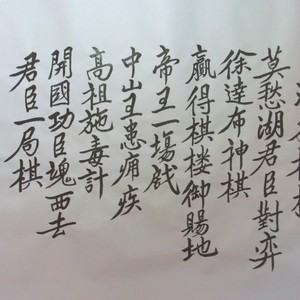 莫愁湖君臣對弈
徐達布神棋
贏得棋楼御賜地
帝王一場戲
中山王患痈疾
高祖施毒計
開國功臣魂西去
君臣一局棋